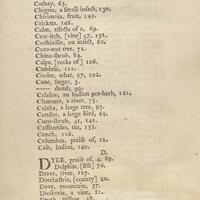 Cathay, 65.
Chigres, a small insect, 130.
Chirimoia, fruit, 143.
Crickets, 146.
Calm, effects of a, 69.
Cow-itch, [vine] 57, 132.
Cochinille, an insect, 60.
Coco-nut tree, 72.
China-shrub, 84.
Calpe, [rocks of] 106.
Cumbria, 111.
Cooler, what, 97, 102.
Cane, Sugar, 3.
—— dumb, 99.
Calaloo, an Indian pot-herb, 141.
Charente, a river, 75.
Calaba, a large tree, 93.
Condor, a large bird, 44.
Coco-shrub, 41, 141.
Cassiterides, tin, 133.
Conch, 118.
Columbus, praise of, 12.
Cale, Indian, 140.
D.
DYER, praise of, 2. 89.
Dolphin, [fish] 70.
Drave, river, 127.
Dorchestria, [county] 20.
Dove, mountain, 57.
Dioscoria, a vine, 21.